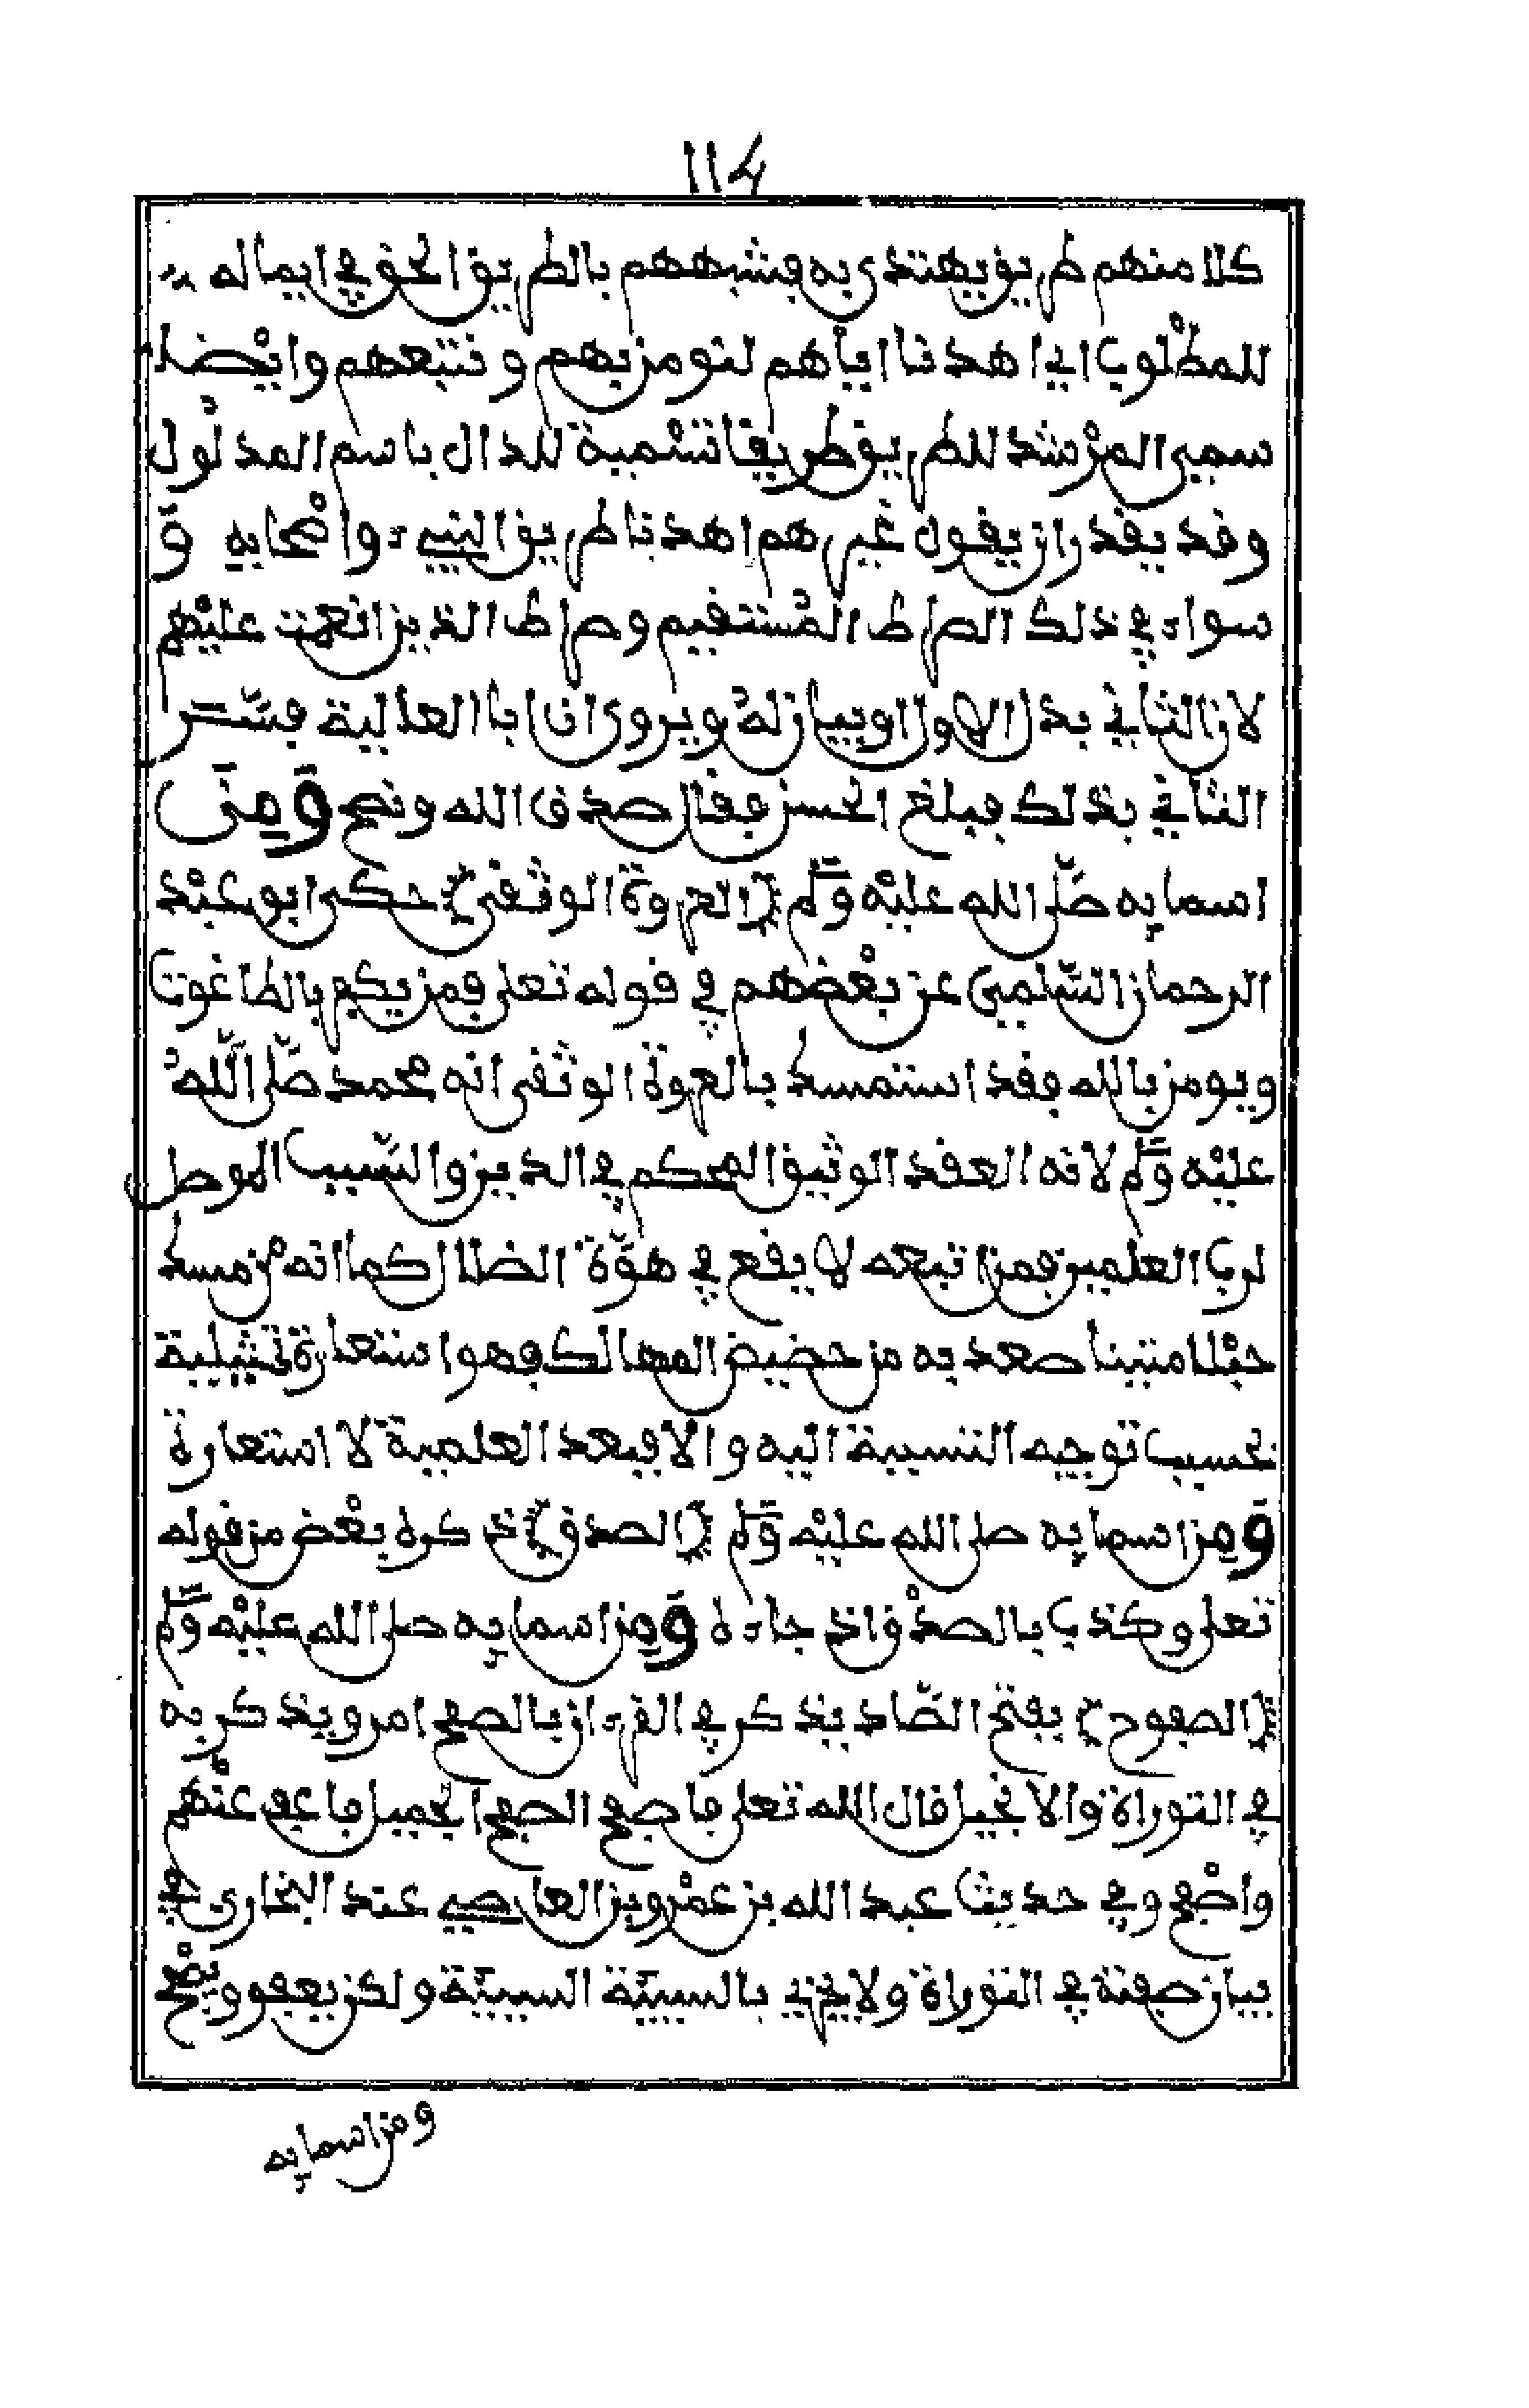 ١١٤
كلا منهم طريق يهتدى به فشبههم بالطريق الحق في ايصاله
للمطلوب اي اهدنا اياهم لنومن بهم ونتبعهم وايضا
سمي المرشد للطريق طريقا تسمية للدال باسم المدلول
وقد يقدر ان يقول غيرهم اهدنا طريق النبيء واصحابه و
سواء في ذلك الصراط المستقيم وصراط الذين انعمت عليهم
لان الثاني بدل الاول او بيان له ويروى ان ابا العالية فسر
الثاني بذلك فبلغ الحسن فقال صدق الله ونصح ومن
اسمايه صلى الله عليه وسلم (العروة الوثقى) حكى ابو عبد
الرحمان السلمي عن بعضهم في قوله تعلى فمن يكفر بالطاغوت
ويومن بالله فقد استمسك بالعروة الوثقى انه محمد صلى الله
عليه وسلم لانه العقد الوثيق المحكم في الدين والسبب الموصل
لرب العلمين فمن اتبعه لا يقع في هوة الضلال كما انه من مسك
حبلا متينا صعد به من حضيض المهالك فهو استعارة تمثيلية
بحسب توجيه التسمية اليه والا فبعد العلمية لا استعارة
ومن اسمايه صلى الله عليه وسلم (الصدق) ذكره بعض من قوله
تعلى وكذب بالصدق اذ جاءه ومن اسمايه صلى الله عليه وسلم
(الصفوح) بفتح الصاد يذكر في القرءان بالصفح امر ويذكر به
في التوراة والانجيل قال الله تعلى فاصفح الصفح الجميل فاعف عنهم
واصفح وفي حديث عبد الله بن عمرو بن العاصي عند البخاري في
بيان صفته في التوراة ولا يجزي بالسيئة السيئة ولكن يعفو ويصفح
ومن اسمايه